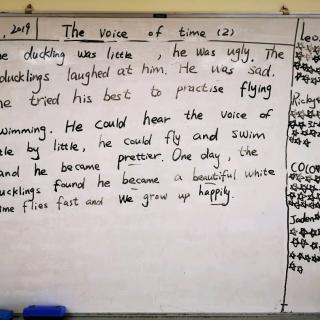 , 2019 The voice of time (2)
e duckling was little , he was ugly. The
ducklings laughed at him. He was sad.
e tried his best to practise flying
wimming. He could hear the voice of
tle by little, he could fly and swim
and he became prettier. One day , the
ucklings found he became a beautiful white
me flies fast and we grow up happily.
Leo
Ricky
COCO
Jaden